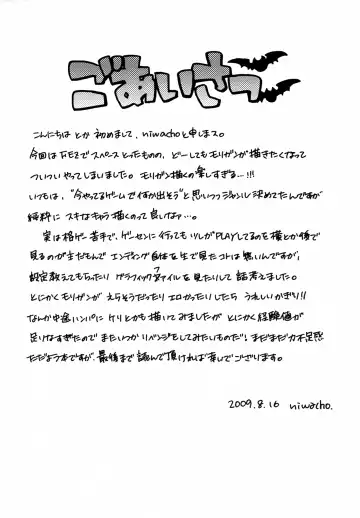 ごあいさつ
こんにちはとか初めまして、niwachoと申しまス。
今回はFEZでスペースとったものの、どーしてもモリガンが描きたくなって
ついついやってしまいました。モリガン描くの楽しすぎる…!!!
いつもは、"今やってるゲームで何か出そう"と思いつつジャンル決めてたんですが
純粋にスキなキャラ描くのって良いなァ…。
実は格ゲー苦手で、ゲーセンに行ってもツレがPLAYしてるのを横とか後で
見るのが主だもんで エンディング自体を生で見たコトは無いんですが、
設定教えてもらったり グラフィックファイルを見たりして話考えました。
とにかくモリガンが えらそうだったりエロかったりしたら うれしいかぎり!!
なんか中途ハンパに ケリとかも描いてみましたが とにかく経験値が
足りなすぎたので またいつかリベンジをしてみたいものだ! まだまだ力不足感
ただよう本ですが、最後まで読んで頂ければ幸いでございます。
2009.8.16 niwacho.